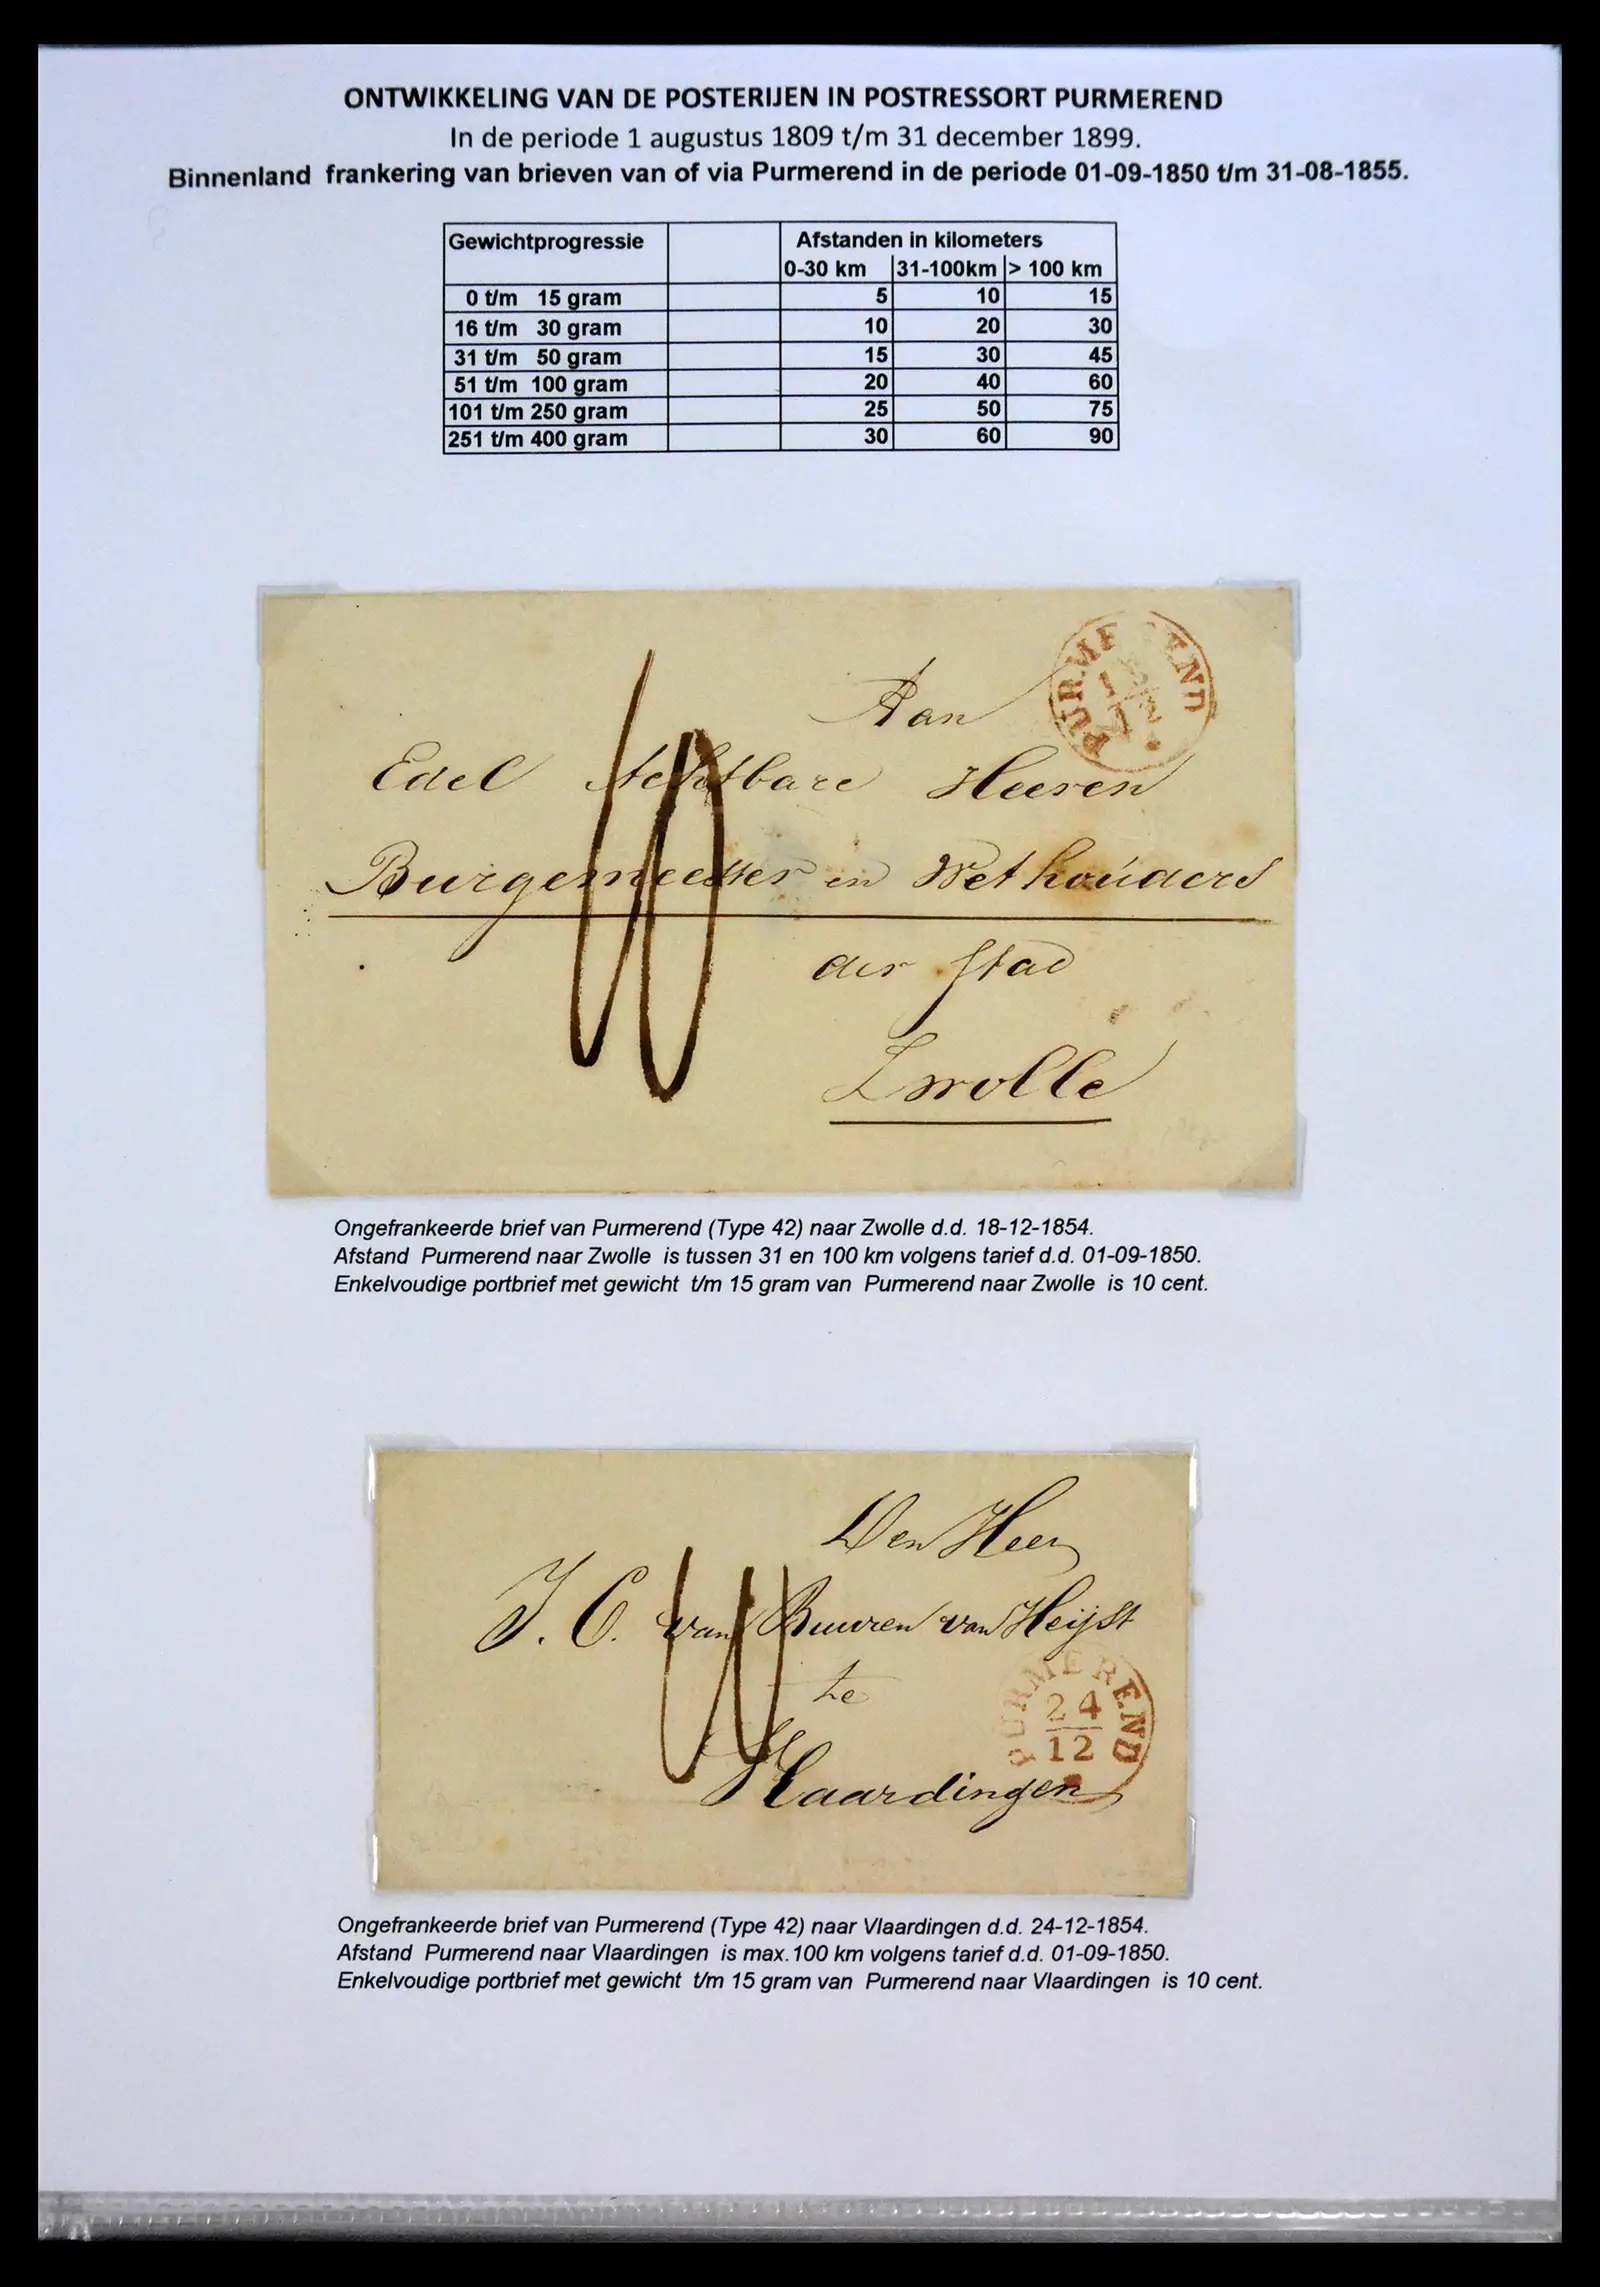 ONTWIKKELING VAN DE POSTERIJEN IN POSTRESSORT PURMEREND
In de periode 1 augustus 1809 t/m 31 december 1899.
Binnenland frankering van brieven van of via Purmerend in de periode 01-09-1850 t/m 31-08-1855.
Gewichtprogressie Afstanden in kilometers
0-30 km 31-100km > 100 km
0 t/m 15 gram 5 10 15
16 t/m 30 gram 10 20 30
31 t/m 50 gram 15 30 45
51 t/m 100 gram 20 40 60
101 t/m 250 gram 25 50 75
251 t/m 400 gram 30 60 90
PURMEREND
Aan
Edel Achtbare Heeren
Burgemeester en Wethouders
der Stad
Zwolle
10
Ongefrankeerde brief van Purmerend (Type 42) naar Zwolle d.d. 18-12-1854.
Afstand Purmerend naar Zwolle is tussen 31 en 100 km volgens tarief d.d. 01-09-1850.
Enkelvoudige portbrief met gewicht t/m 15 gram van Purmerend naar Zwolle is 10 cent.
Den Heer
J. C. van Buuren van Heijst
te
Vlaardingen
10
PURMEREND
24
12
Ongefrankeerde brief van Purmerend (Type 42) naar Vlaardingen d.d. 24-12-1854.
Afstand Purmerend naar Vlaardingen is max.100 km volgens tarief d.d. 01-09-1850.
Enkelvoudige portbrief met gewicht t/m 15 gram van Purmerend naar Vlaardingen is 10 cent.